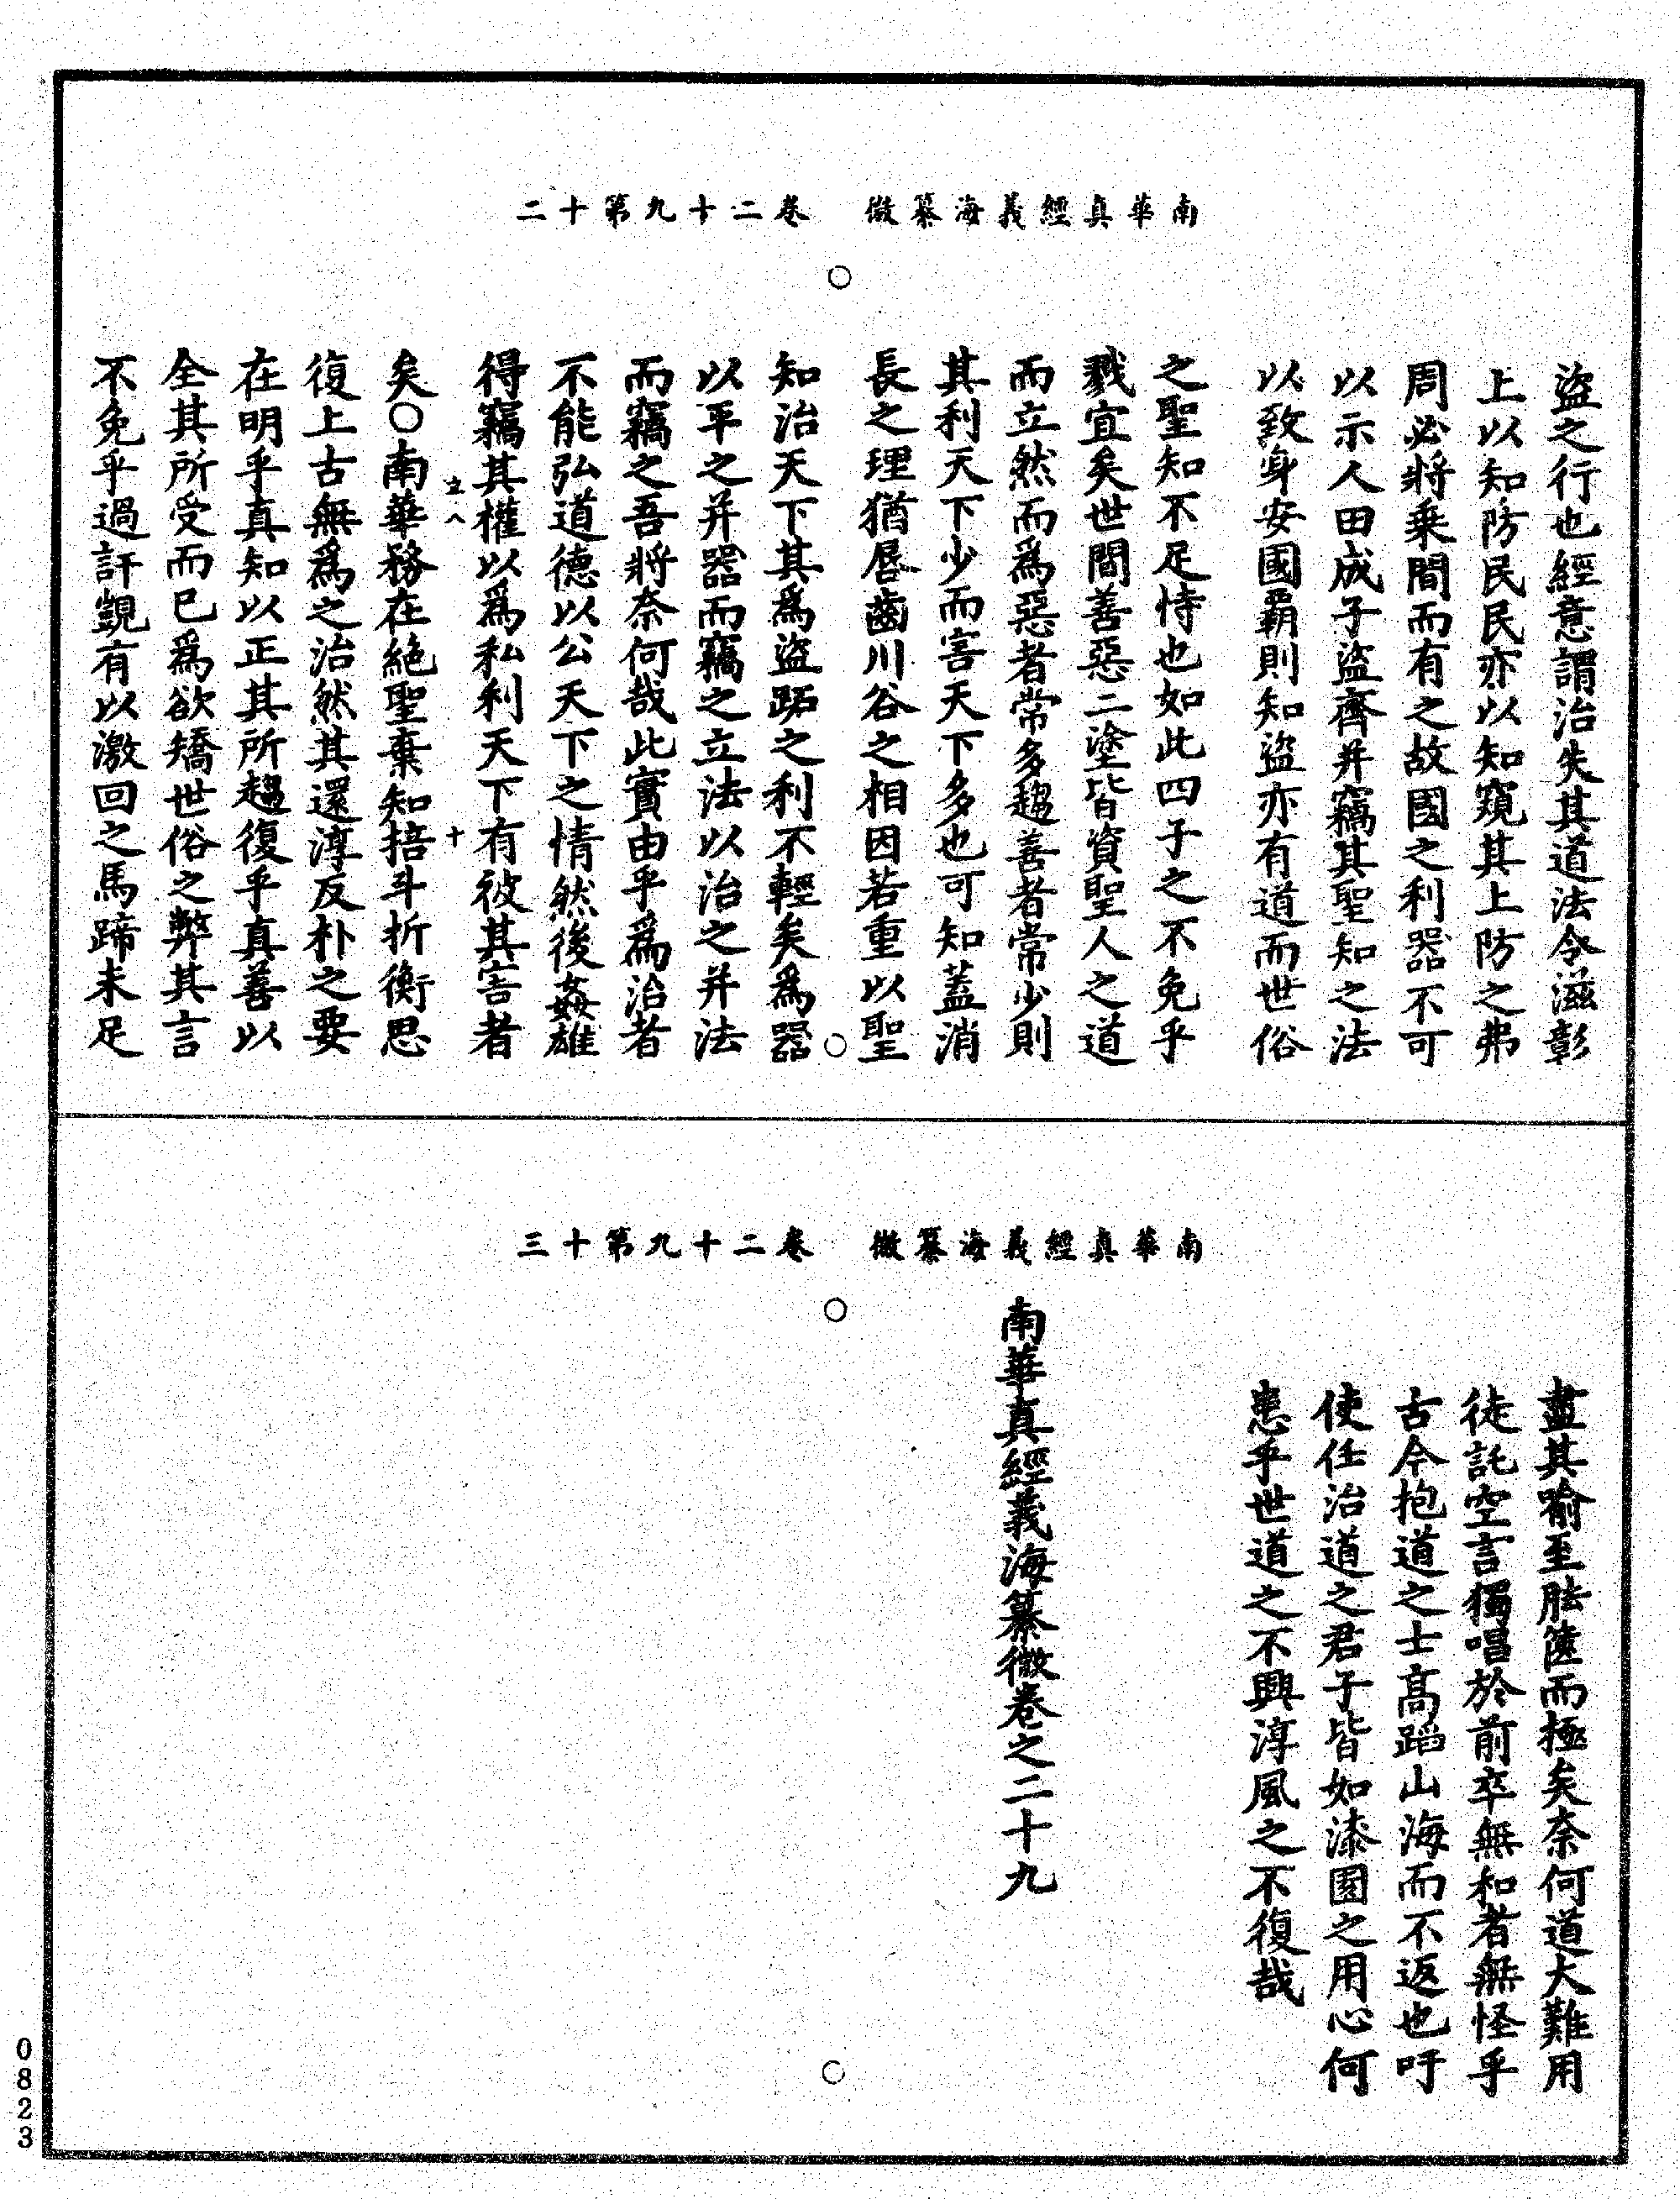 南華真經義海纂微　卷二十九第十二
盜之行也經意謂治失其道法令滋彰
上以知防民民亦以知窺其上防之弗
周必將乗間而有之故國之利器不可
以示人田成子盜齊并竊其聖知之法
以致身安國霸則知盜亦有道而世俗
之聖知不足恃也如此四子之不免乎
戮宜矣世間善惡二塗皆資聖人之道
而立然而爲惡者常多趨善者常少則
其利天下少而害天下多也可知蓋消
長之理猶唇齒川谷之相因若重以聖
知治天下其爲盜跖之利不輕矣爲器
以平之并器而竊之立法以治之并法
而竊之吾將奈何哉此實由乎爲治者
不能弘道德以公天下之情然後姦雄
得竊其權以爲私利天下有彼其害者
立八　十
矣○南華務在絕聖棄知掊斗折衡思
復上古無爲之治然其還淳反朴之要
在明乎真知以正其所趨復乎真善以
全其所受而已爲欲矯世俗之弊其言
不免乎過訐覬有以激回之馬蹄未足
南華真經義海纂微　卷二十九第十三
盡其喻至胠篋而極矣奈何道大難用
徒託空言獨唱於前卒無和者無怪乎
古今抱道之士高蹈山海而不返也吁
使任治道之君子皆如漆園之用心何
患乎世道之不興淳風之不復哉
南華真經義海纂微卷之二十九
0823